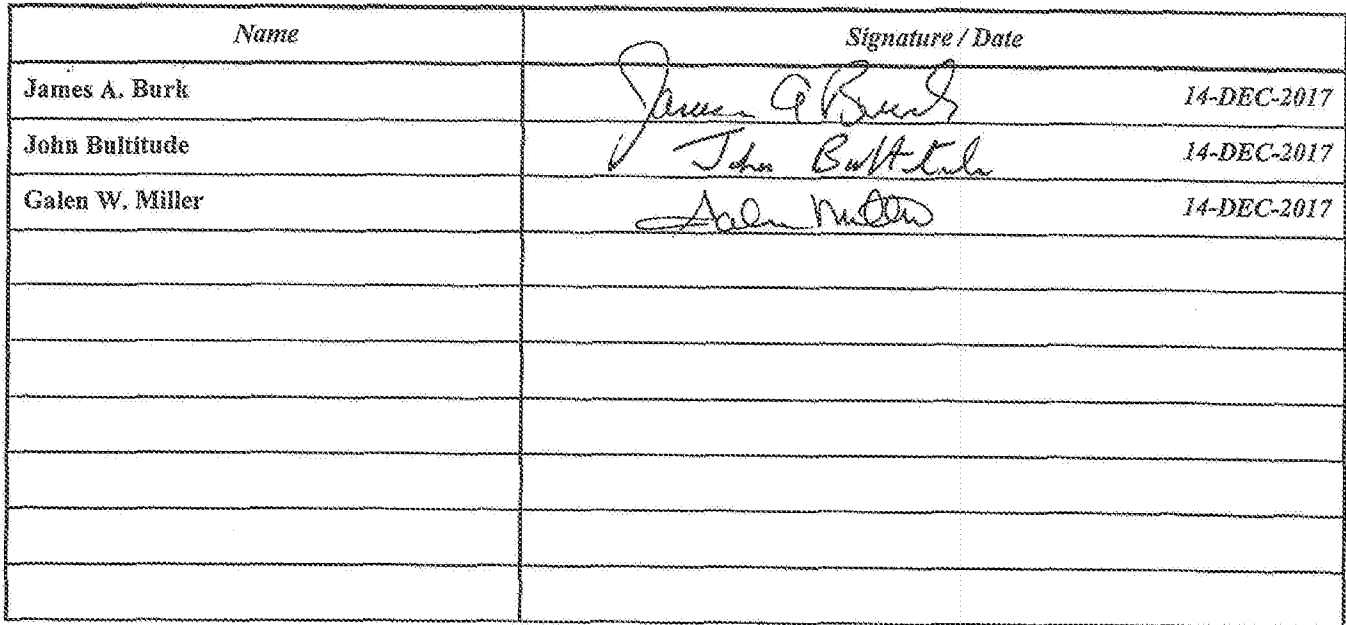 Name Signature / Date
James A. Burk James A Burk 14-DEC-2017
John Bultitude John Bultitude 14-DEC-2017
Galen W. Miller Galen Miller 14-DEC-2017